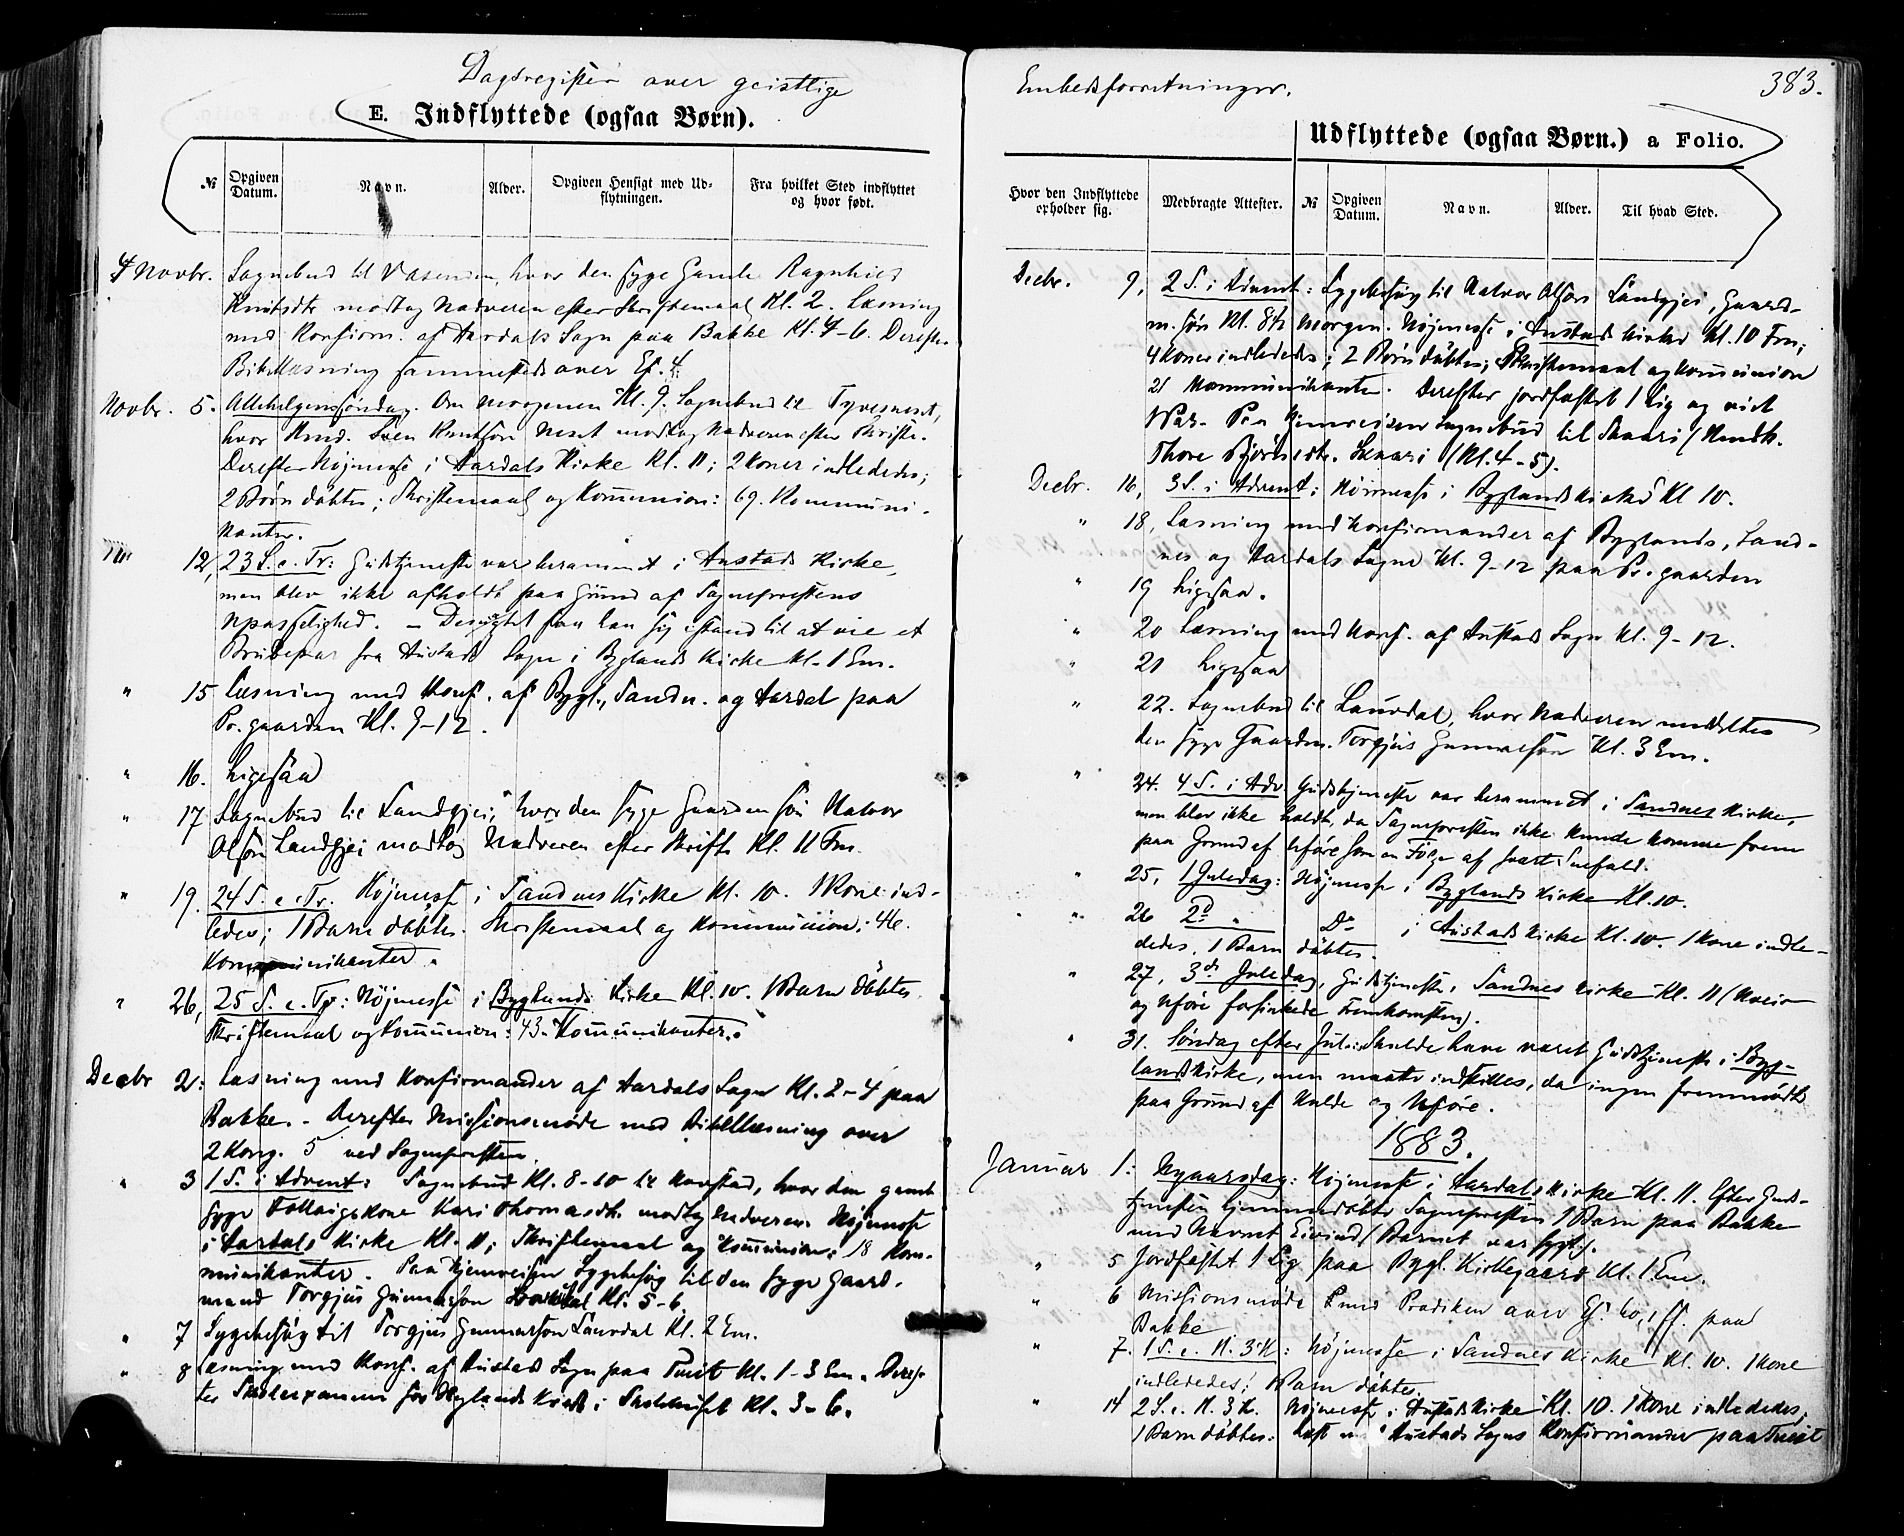 Dagsregister over geistlige
E. Indflyttede (ogsaa Børn).
№
Opgiven Datum.
Navn.
Alder.
Opgiven Hensigt med Udflytningen.
Fra hvilket Sted indflyttet og hvor født.
4 Novbr. Sognebud til Vasenden, hvor den syge Gamle Ragnhild
Knutsdtr modtog Nadveren efter Skriftemaal Kl. 2. Læsning
med Konfirm. af Aardals Sogn paa Bakke Kl. 4-6. Derefter
Bibellæsning sammesteds over Ef. 4.
Novbr. 5. Allehelgenssøndag. Om Morgenen Kl. 9. Sognebud til
hvor Sven Knutsøn Neset modtog Nadveren efter Skrifte.
Derefter Højmesse i Aardals Kirke Kl. 11; 2 Koner indlededes;
2 Børn døbtes; Skriftemaal og Kommunion: 69. Kommuni-
kanter.
12, 23 S. e. Tr: Gudstjeneste var berammet i Austads Kirke,
men blev ikke afholdt paa Grund af Sognepræstens
Upasselighed. – Desuagtet saa han sig istand til at vie et
Brudepar fra Austads Sogn i Byglands Kirke Kl. 1 Em.
" 15 Læsning med Konf. af Bygl., Sandn. og Aardal paa
Pr. gaarden Kl. 9-12.
" 16. Ligesaa
" 17 Sognebud til Landgjei, hvor den syge Gaardm søn Halvor
Olsøn Landgjei modtog Nadveren efter Skrifte Kl. 11 Fm.
" 19. 24 S. e. Tr. Højmesse i Sandnes Kirke Kl. 10. 1 Kone ind-
ledes; 1 Barn døbtes. Skriftemaal og Kommunion: 46.
Kommunikanter.
" 26, 25 S. e. Tr: Højmesse i Byglands Kirke Kl. 10. 1 Barn døbtes
Skriftemaal og Kommunion: 43. Kommunikanter.
Decbr 2: Læsning med Konfirmander af Aardals Sogn Kl. 2-4 paa
Bakke. – Derefter Missionsmøde med Bibellæsning over
2 Kong. 5 ved Sognepresten.
" 3 1 S. i Advent: Sognebud Kl. 8-10 til Navstad, hvor den gamle
syge Kone Kari Thomasdtr. modtog Nadveren. Højmesse
i Aardals Kirke Kl. 11; Skriftemaal og Kommunion: 18 Kom-
munikanter. Paa Hjemreisen Sygebesøg til den syge Gaard-
mand Torgjus Gunnarsøn Lauvdal Kl. 5-6.
" 7 Sygebesøg til Torgjus Gunnarsøn Lauvdal Kl. 2 Em.
" 8 Læsning med Konf. af Austad Sogn paa Tveit Kl. 1-3 Em. Deref-
ter Skoleexamen for Kreds i Skolehuset Kl. 3-6.
Embedsforretninger.
383.
Udflyttede (ogsaa Børn.) a Folio.
Hvor den Indflyttede opholder sig.
Medbragte Attester.
№
Opgiven Datum.
Navn.
Alder.
Til hvad Sted.
Decbr. 9, 2 S. i Advent: Sygebesøg til Halvor Olsøn Landgjei, Gaard-
m. søn Kl. 8½ Morgen. Højmesse i Austads Kirke Kl. 10 Fm;
4 Koner indlededes; 2 Børn døbtes; Skriftemaal og Kommunion
21 Kommunikanter. Derefter jordfæstet 1 Lig og viet
1 Par. Paa Hjemreisen Sognebud til Skaari
Thore Bjørnsdtr. Skaari (Kl. 4-5).
Decbr. 16, 3 S. i Advent: Høimesse i Byglands Kirke Kl 10.
" 18, Læsning med Konfirmander af Byglands, Sand-
nes og Aardals Sogne Kl. 9-12 paa Pr. gaarden
" 19 Ligesaa.
" 20 Læsning med Konf. af Austads Sogn Kl. 9-12.
" 21 Ligesaa
" 22. Sognebud til Lauvdal, hvor Nadveren meddeltes
den syge Gaardm. Torgjus Gunnarsøn Kl. 3 Em.
" 24. 4 S. i Adv Gudstjeneste var berammet i Sandnes Kirke,
men blev ikke holdt, da Sognepresten ikke kunde komme frem
paa Grund af Uføre som en Følge af svært Snefald.
" 25, 1 Juledag: Højmesse i Byglands Kirke Kl. 10.
" 26 2d " Do i Austads Kirke Kl. 10. 1 Kone indle-
dedes. 1 Barn døbtes.
" 27, 3die Juledag, Gudstjeneste, Sandnes Kirke Kl. 11 (Uveir
og Uføre forsinkede Fremkomsten).
" 31. Søndag efter Jul: Skulde have været Gudstjeneste i Byg-
lands Kirke, men maatte indstilles, da ingen fremmødte
paa Grund af Kulde og Uføre.
1883.
Januar 1: Nyaarsdag: Højmesse i Aardals Kirke Kl. 11. Efter Guds-
tjenesten hjemmedøbte Sognepresten 1 Barn paa Bakke
med Navnet Eivind (Barnet var sygt).
" 5 Jordfæstet 1 Lig paa Bygl. Kirkegaard Kl. 1 Em.
" 6 Missionsmøde med Prædiken over Es. 60, 1 ff. paa
Bakke
" 7. 1 S. e. H. 3 K: Højmesse i Sandnes Kirke Kl. 10. 1 Kone
indlededes; 1 Barn døbtes.
" 14 2 S. e. H. 3 K. Højmesse i Austads Kirke Kl. 10. 1 Kone indlededes,
1 Barn døbtes. Læst med Austads Sogns Konfirmander paa Tveit